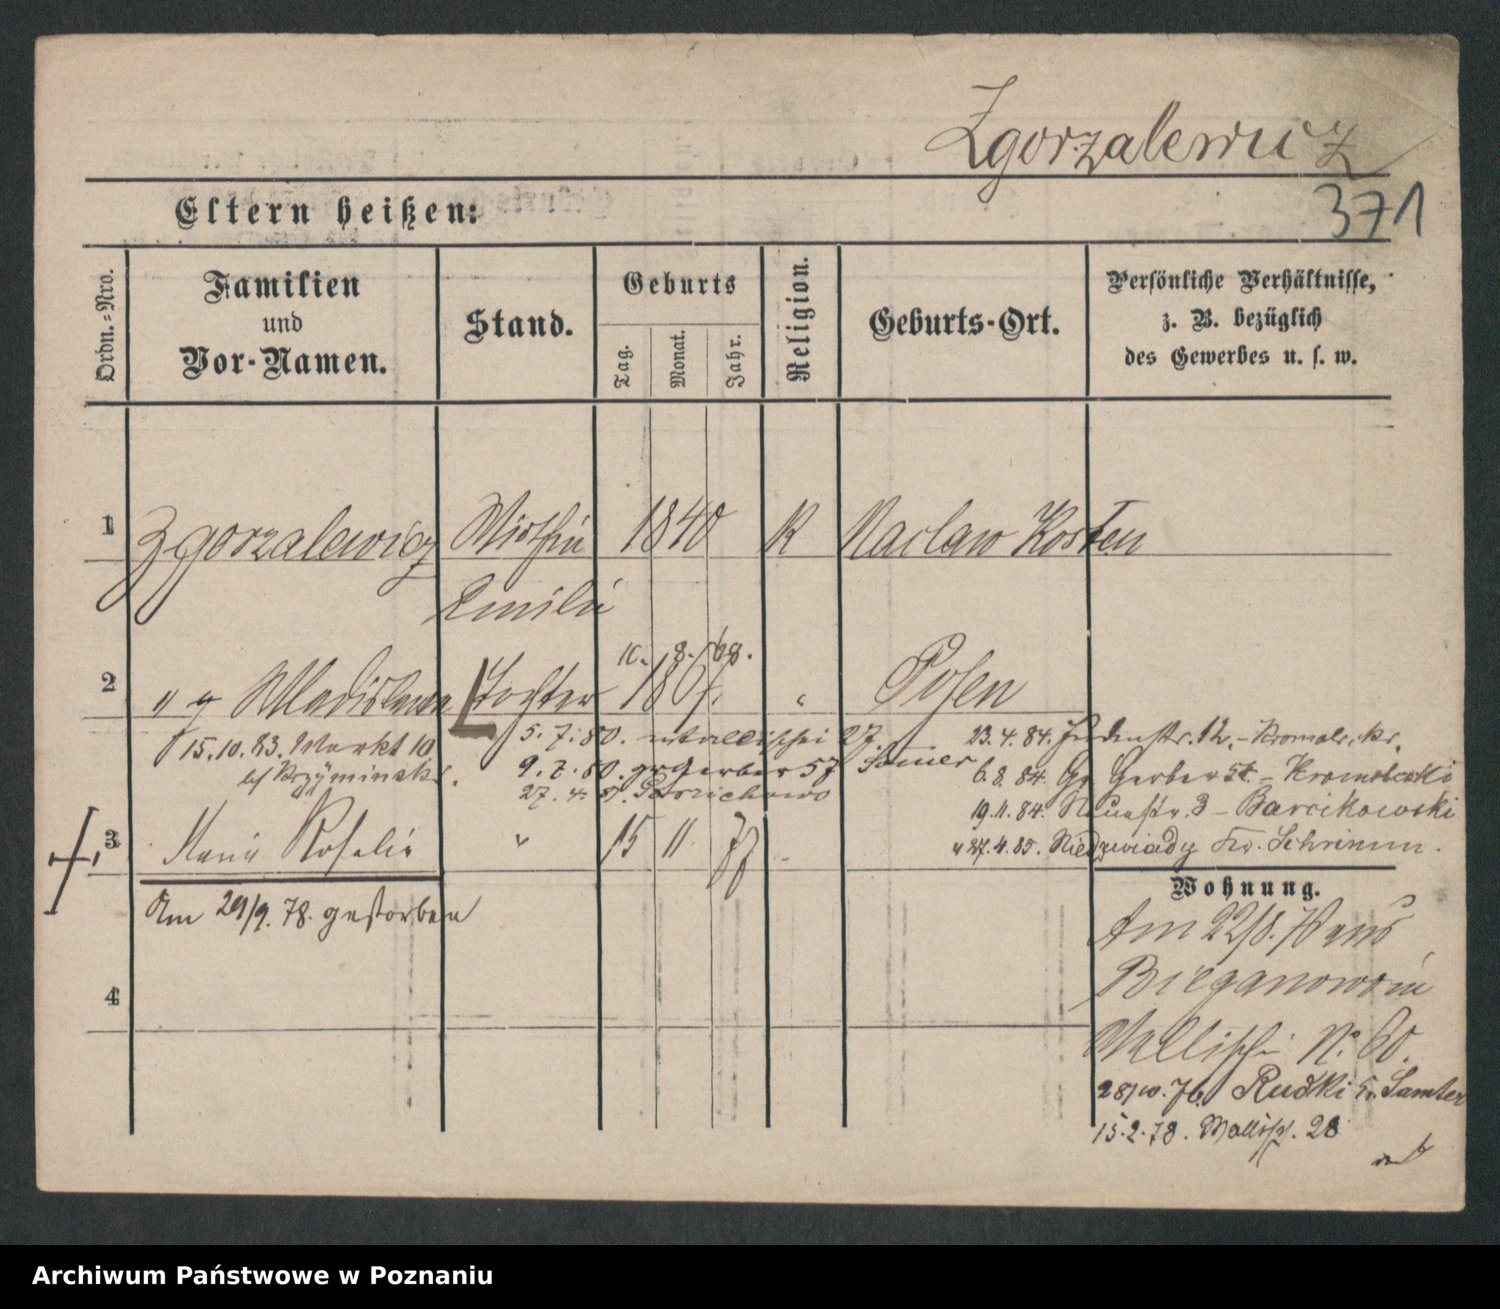 Zgorzalewicz
371
Eltern heißen:
Ordn.=Nro.
Familien
und
Vor-Namen.
Stand.
Geburts
Tag.
Monat.
Jahr.
Religion.
Geburts-Ort.
Persönliche Verhältnisse,
z. B. bezüglich
des Gewerbes u. s. w.
1 Zgorzalewicz Wirthin 1840 R Naclaw Kosten
Emilie
10. 8. 68.
2 " " Wladislawa Tochter 1867. " Posen
15.10.83. Markt 10
bei Krzyminski.
5.7.80. 27.
9.7.80. gr Gerber 57
27.4.81.
23.4.84. Judenstr. 12.
6.8.84. Gr. Gerberst - Kromolicki
19.11.84. Neuestr. 3 - Barcikowski
27.4.85. Niedzwiady Kr. Schrimm.
3 Maria Rosalia " 15 11 77
Am 29/9. 78. gestorben
4
Wohnung.
Am 22/8. 70 aus
Bieganowo in
Wallischei No 60.
28/10.76. Rudki Kr. Samter
15.2.78. Wallisch. 28
Archiwum Państwowe w Poznaniu